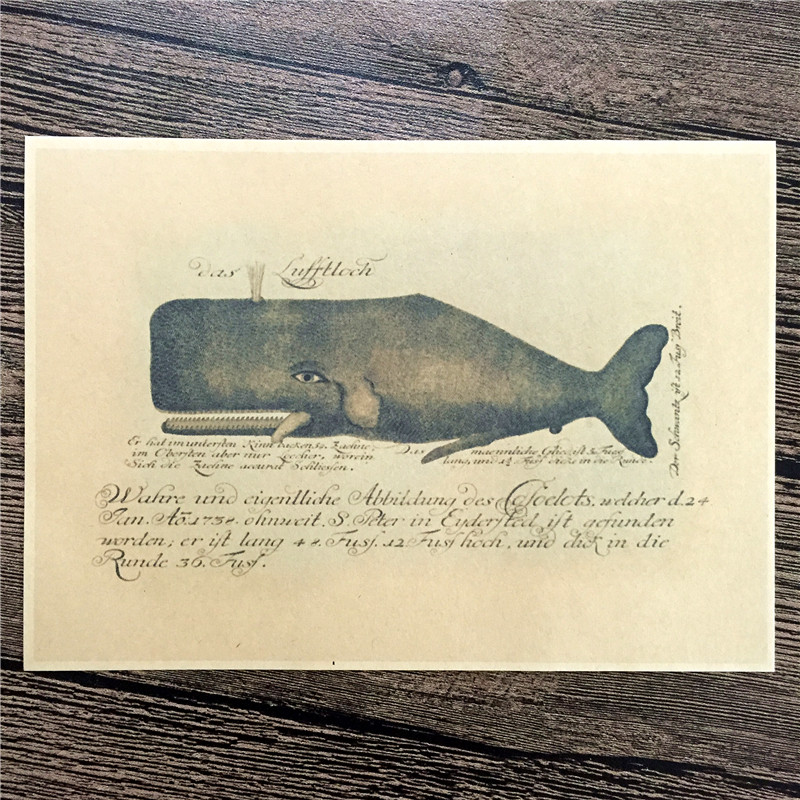 das Lufftloch
Er hat im untersten Kinn backen 52. Zaehne,
im Obersten aber nur Loecher, worein
Sich die Zaehne accurat Schliessen.
Das maennliche Glied, ist 5. Fuss
lang, und 1½ Fuss dicke in die Runde.
Der Schwantz ist 12 Fuss Breit.
Wahre und eigentliche Abbildung des welcher d. 24
Jan. Ao. 1738. ohnweit. S. Peter in Eydersted, ist gefunden
worden; er ist lang 48. Fuss. 12 Fuss hoch, und dick in die
Runde 36. Fuss.